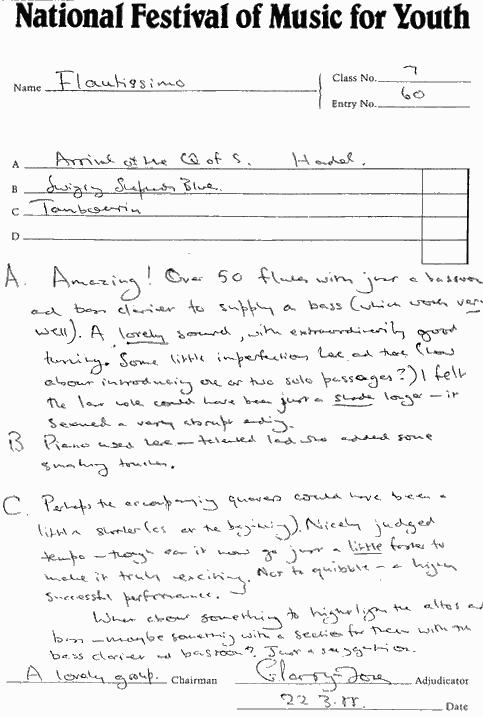 National Festival of Music for Youth
Name Flautissimo
Class No. 7
Entry No. 60
A Arrival of the Q of S. Handel.
B Swigry Blue.
C Tambourin
D
A. Amazing! Over 50 flutes with just a bassoon
ad bass clarinet to supply a bass (which works very
well). A lovely sound, with extraordinarily good
tuning. Some little imperfections here ad there (how
about introducing one or two solo passages?) I felt
the last note could have been just a shade longer – it
seemed a very abrupt ending.
B Piano used here – talented lad who added some
smashing touches.
C. Perhaps the accompanying quavers could have been a
little shorter (as at the beginning). Nicely judged
tempo – though can it now go just a little faster to
make it truly exciting. Not to quibble – a highly
successful performance.
What about something to highlight the altos ad
bass – maybe something with a section for them with the
bass clarinet ad bassoon? Just a suggestion.
A lovely group. Chairman
Adjudicator
22.3.88. Date